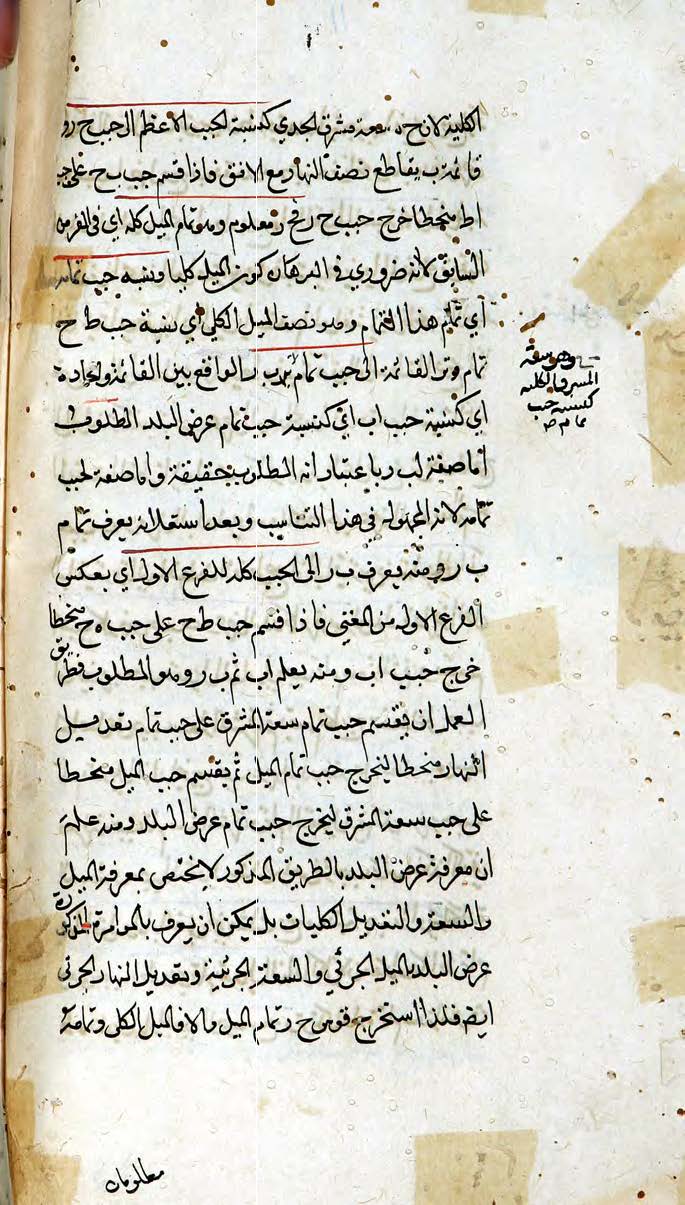 الكلية لان ح ه سعة مشرق الجدي كنسبة الجيب الاعظم الى جيب ح ر و
قائمة ب يقاطع نصف النهار مع الافق فاذا قسم جيب ب ح على جيب
اط منحطا خرج جيب ح ر فح ر معلوم وهو تمام الميل كله اي في الفرض
السابق لانه ضروري في البرهان كون الميل كليا ونسبة جيب تمامه
اي تمام هذا التمام وهو نصف الميل الكلي اي نسبة جيب ط ح
تمام وتر القائمة الى جيب تمام ب ر الواقع بين القائمة والحادة
اي كنسبة جيب اب اي كنسبة جيب تمام عرض البلد المطلوب
اما صفة لب ر باعتبار انه المطلوب حقيقة واما صفة لجيب
تمامه لانه المجهول في هذا التناسب وبعد استعلامه يعرف تمام
ب ر ومنه يعرف ب ر الى الجيب كله للفرع الاول اي بعكس
الفرع الاول من المغني فاذا قسم جيب ط ح على جيب ه ح منحطا
خرج جيب اب ومنه يعلم اب ثم ب ر وهو المطلوب فطريق
العمل ان يقسم جيب تمام سعة المشرق على جيب تمام تعديل
النهار منحطا ليخرج جيب تمام الميل ثم يقسم جيب الميل منحطا
على جيب سعة المشرق ليخرج جيب تمام عرض البلد ومنه علم
ان معرفة عرض البلد بالطريق المذكور لا يختص بمعرفة الميل
والسعة والتعديل الكليات بل يمكن ان يعرف بالموامرة المذكورة
عرض البلد بالميل الجزئي والسعة الجزئية وتعديل النهار الجزئي
ايضا فلذا استخرج قوس ح ر تمام الميل والا فالميل الكلي وتمامه
وهو سعة
المشرق الكلية
كنسبة جيب
تمام
معلومان